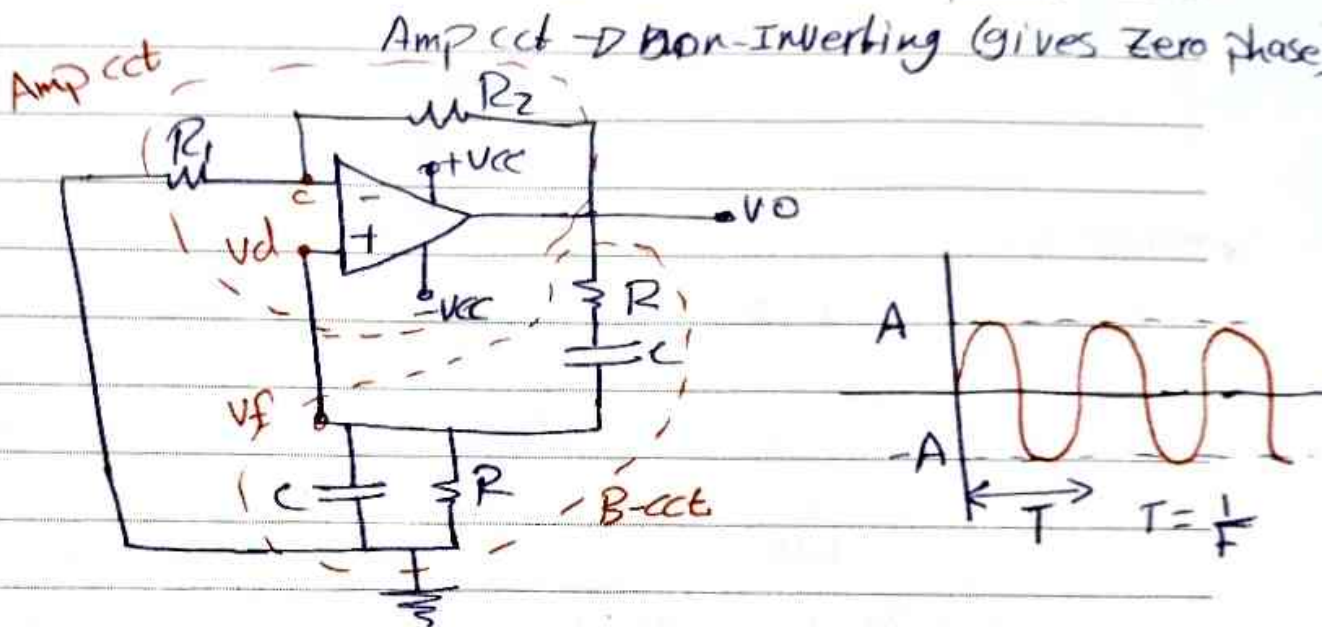 Amp cct → non-Inverting (gives Zero phase)
Amp cct
R2
R1
+VCC
c
-
VO
vd
+
-VCC
R
A
C
vf
-A
C
R
B-cct
T
T = 1/F